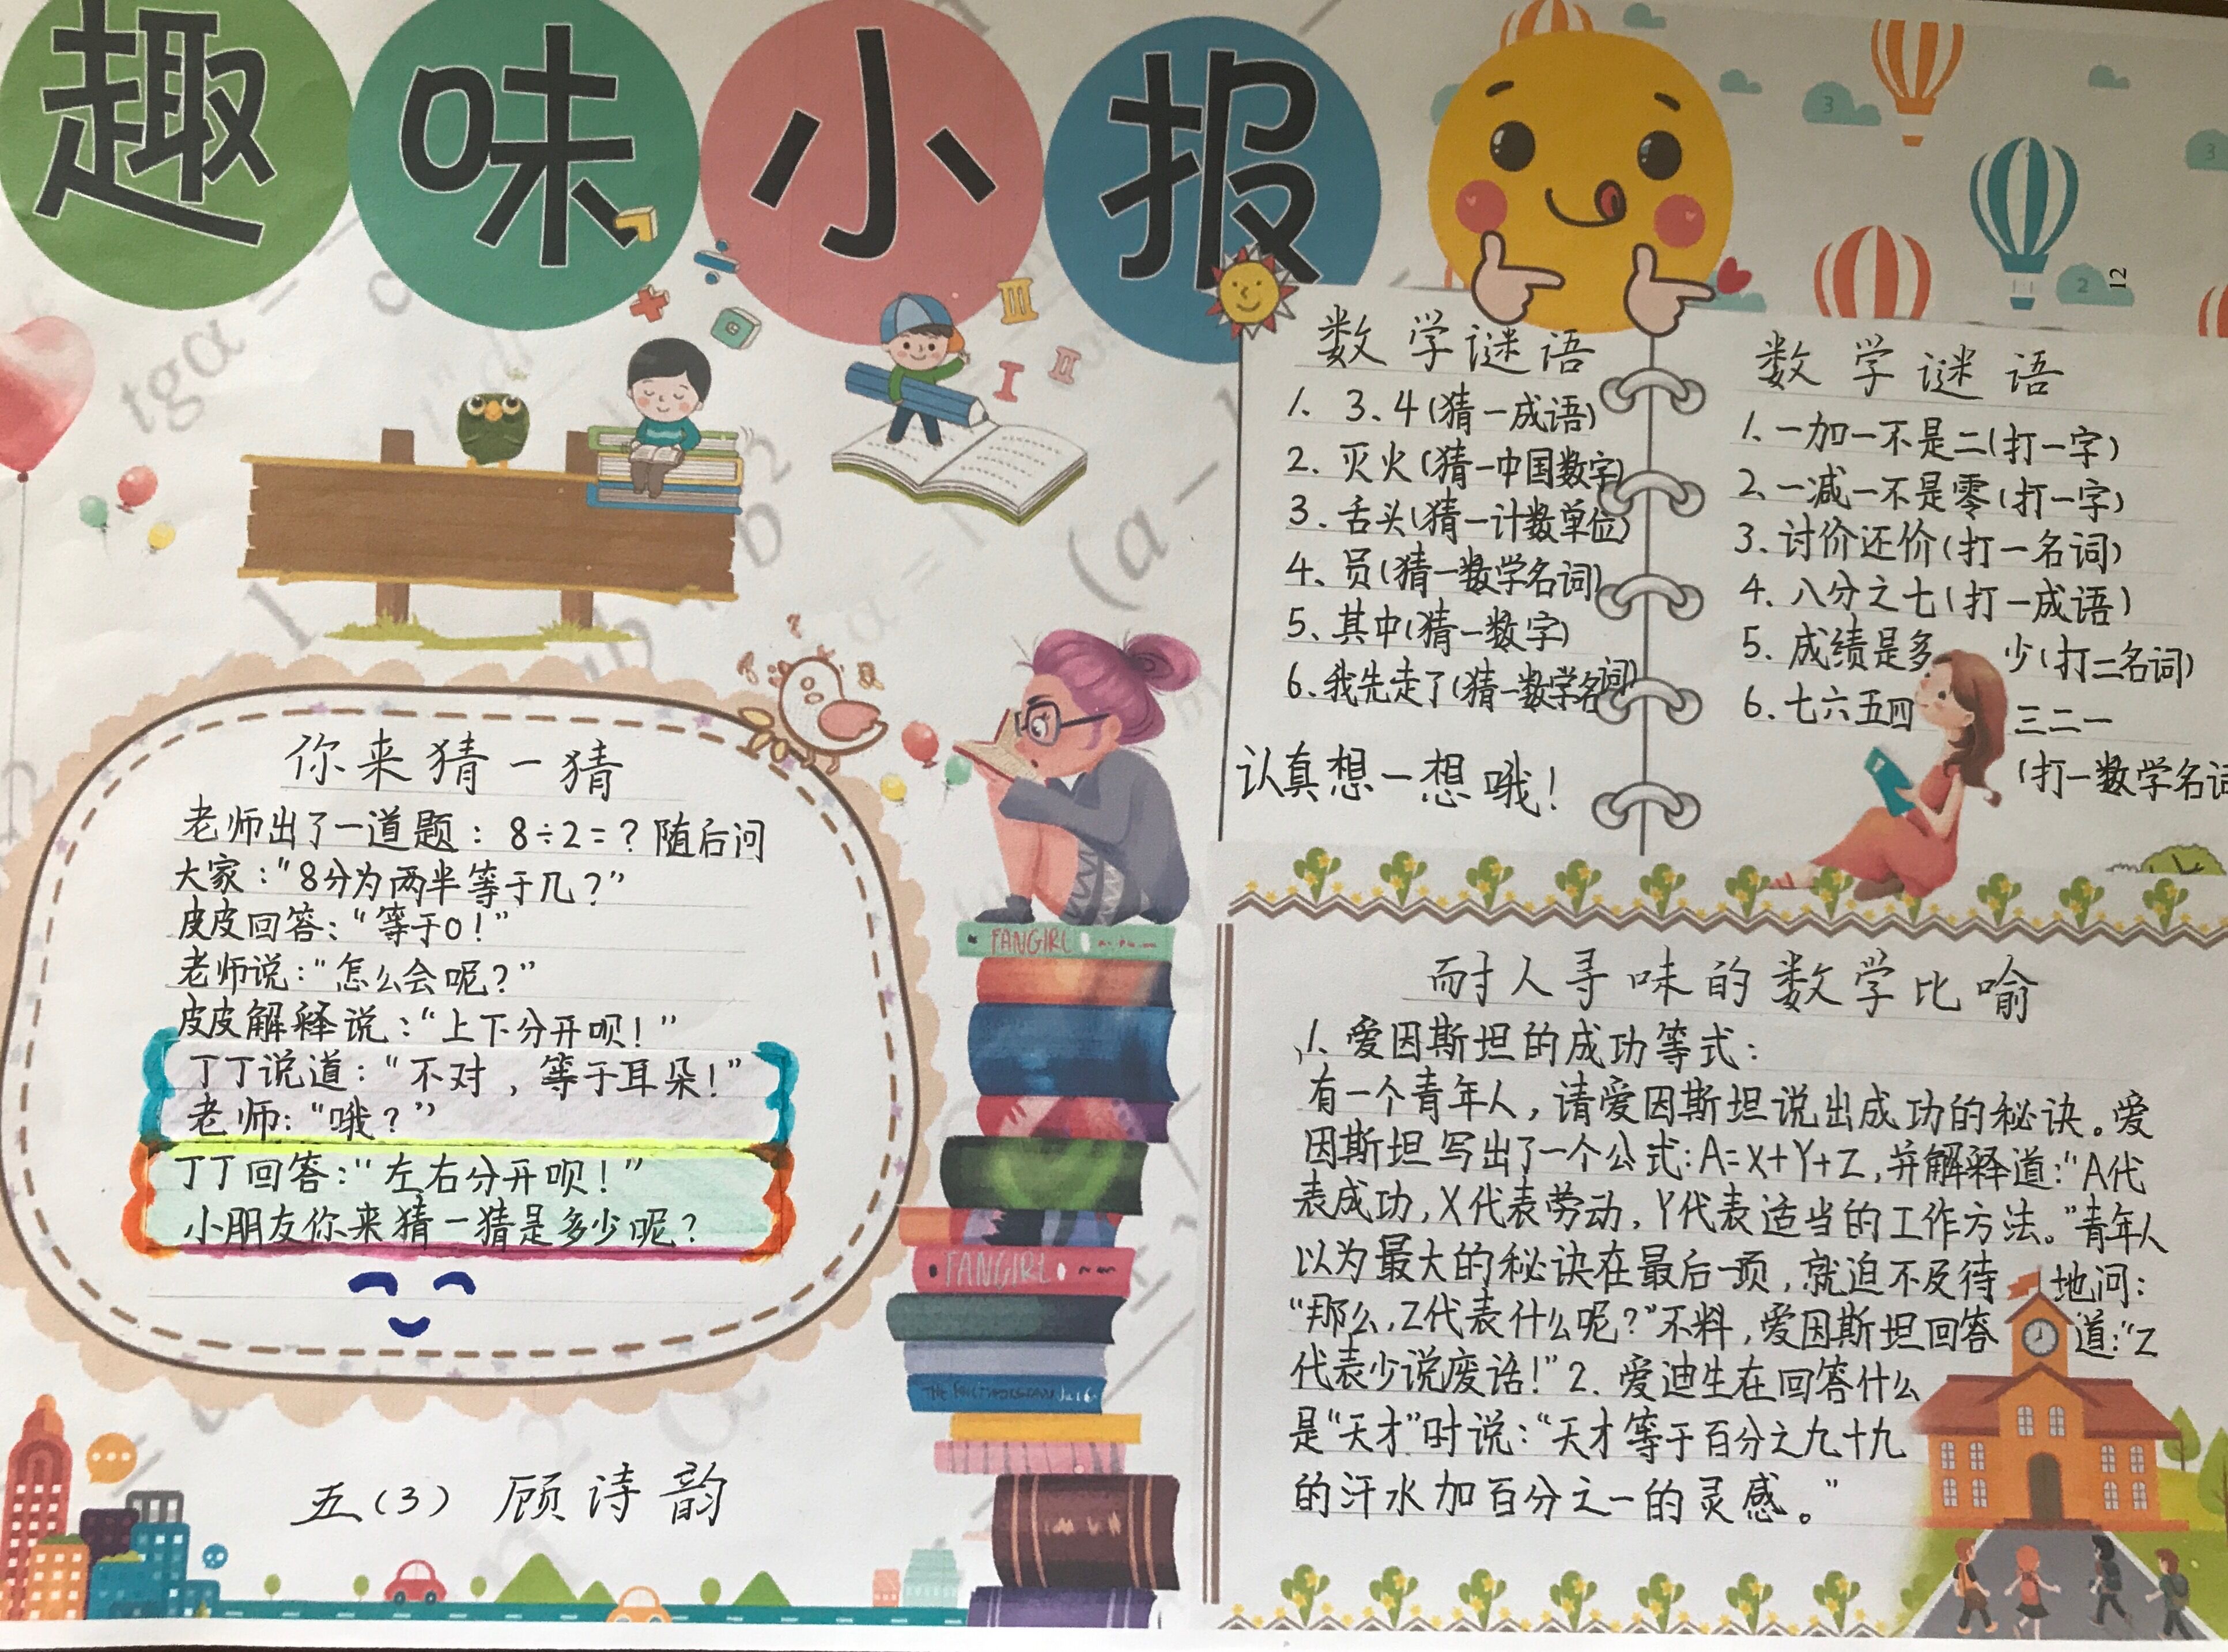 趣味小报
你来猜一猜
老师出了一道题：8÷2=？随后问
大家："8分为两半等于几？"
皮皮回答："等于0！"
老师说："怎么会呢？"
皮皮解释说："上下分开呗！"
丁丁说道："不对，等于耳朵！"
老师："哦？"
丁丁回答："左右分开呗！"
小朋友你来猜一猜是多少呢？
五（3） 顾诗韵
数学谜语
1、3、4（猜一成语）
2.灭火（猜一中国数字）
3.舌头（猜一计数单位）
4、员（猜一数学名词）
5、其中（猜一数字）
6.我先走了（猜一数学名词）
认真想一想哦！
数学谜语
1.一加一不是二（打一字）
2、一减一不是零（打一字）
3.讨价还价（打一名词）
4.八分之七（打一成语）
5.成绩是多少（打二名词）
6.七六五四三二一
（打一数学名词
耐人寻味的数学比喻
1.爱因斯坦的成功等式：
有一个青年人，请爱因斯坦说出成功的秘诀。爱
因斯坦写出了一个公式：A=X+Y+Z，并解释道："A代
表成功，X代表劳动，Y代表适当的工作方法。"青年人
以为最大的秘诀在最后一项，就迫不及待地问：
"那么，Z代表什么呢？"不料，爱因斯坦回答道："Z
代表少说废话！"2.爱迪生在回答什么
是"天才"时说："天才等于百分之九十九
的汗水加百分之一的灵感。"
FANGIRL
FANGIRL
tgα =
(a −
b
2
3
3
2
12
I
II
III